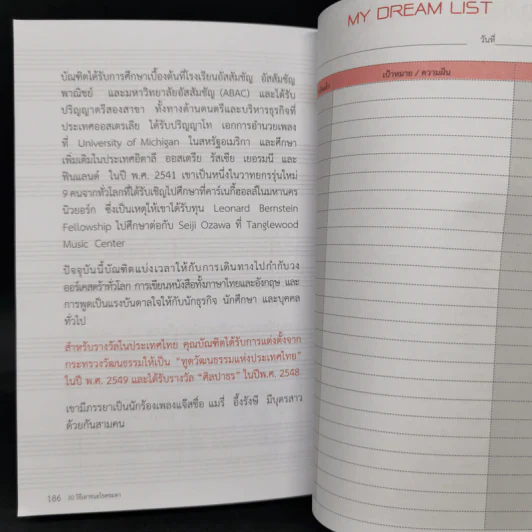 บัณฑิตได้รับการศึกษาเบื้องต้นที่โรงเรียนอัสสัมชัญ อัสสัมชัญ
พาณิชย์ และมหาวิทยาลัยอัสสัมชัญ (ABAC) และได้รับ
ปริญญาตรีสองสาขา ทั้งทางด้านดนตรีและบริหารธุรกิจที่
ประเทศออสเตรเลีย ได้รับปริญญาโท เอกการอำนวยเพลง
ที่ University of Michigan ในสหรัฐอเมริกา และศึกษา
เพิ่มเติมในประเทศอิตาลี ออสเตรีย รัสเซีย เยอรมนี และ
ฟินแลนด์ ในปี พ.ศ. 2541 เขาเป็นหนึ่งในวาทยกรรุ่นใหม่
9 คนจากทั่วโลกที่ได้รับเชิญไปศึกษาที่คาร์เนกี้ฮอลล์ในมหานคร
นิวยอร์ก ซึ่งเป็นเหตุให้เขาได้รับทุน Leonard Bernstein
Fellowship ไปศึกษาต่อกับ Seiji Ozawa ที่ Tanglewood
Music Center
ปัจจุบันนี้บัณฑิตแบ่งเวลาให้กับการเดินทางไปกำกับวง
ออร์เคสตร้าทั่วโลก การเขียนหนังสือทั้งภาษาไทยและอังกฤษ และ
การพูดเป็นแรงบันดาลใจให้กับนักธุรกิจ นักศึกษา และบุคคล
ทั่วไป
สำหรับรางวัลในประเทศไทย คุณบัณฑิตได้รับการแต่งตั้งจาก
กระทรวงวัฒนธรรมให้เป็น "ทูตวัฒนธรรมแห่งประเทศไทย"
ในปี พ.ศ. 2549 และได้รับรางวัล "ศิลปาธร" ในปีพ.ศ. 2548
เขามีภรรยาเป็นนักร้องเพลงแจ๊สชื่อ แมรี่ อึ้งรังษี มีบุตรสาว
ด้วยกันสามคน
186
MY DREAM LIST
วันที่
เป้าหมาย / ความฝัน